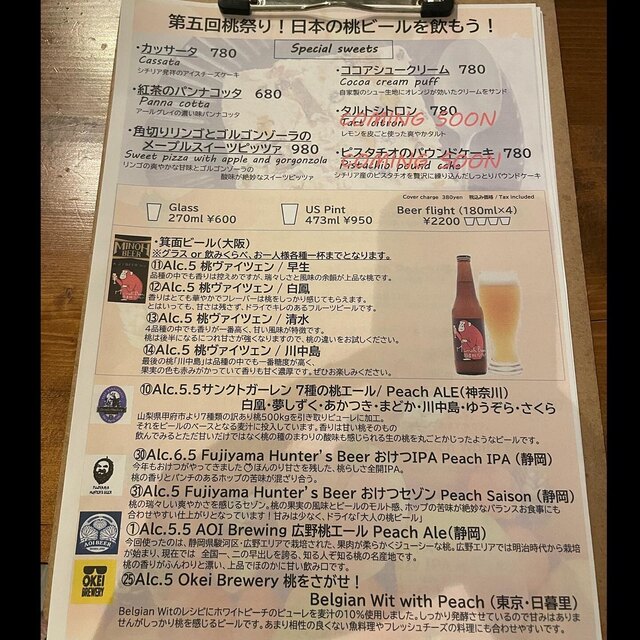 第五回桃祭り！日本の桃ビールを飲もう！
Special sweets
・カッサータ 780
Cassata
シチリア発祥のアイスチーズケーキ
・紅茶のパンナコッタ 680
Panna cotta
アールグレイの濃い味パンナコッタ
・角切りリンゴとゴルゴンゾーラの
メープルスイーツピッツァ 980
Sweet pizza with apple and gorgonzola
リンゴの爽やかな甘味とゴルゴンゾーラの
酸味が絶妙なスイーツピッツァ
・ココアシュークリーム 760
Cocoa cream puff
自家製のシュー生地にオレンジが効いたクリームをサンド
・タルトシトロン 780
Tart citron
COMING SOON
レモンを皮ごと使った爽やかタルト
・ピスタチオのパウンドケーキ 780
Pistachio pound cake
COMING SOON
シチリア産のピスタチオを贅沢に練り込んだしっとりパウンドケーキ
Cover charge 380yen 税込み価格 / Tax included
Glass
270ml ¥600
US Pint
473ml ¥950
Beer flight (180ml×4)
¥2200
MINOH
BEER
・箕面ビール(大阪)
※グラス or 飲みくらべ、お一人様各種一杯までとなります。
⑪Alc.5 桃ヴァイツェン / 早生
品種の中でも香りは控えめですが、瑞々しさと風味の余韻が上品な桃です。
⑫Alc.5 桃ヴァイツェン / 白鳳
香りはとても華やかでフレーバーは桃をしっかり感じてもらえます。
とはいっても、甘さは残さず、ドライでキレのあるフルーツビールです。
⑬Alc.5 桃ヴァイツェン / 清水
4品種の中でも香りが一番高く、甘い風味が特徴です。
桃は後半になるにつれ甘さが強くなりますので、桃の違いをお試しください。
⑭Alc.5 桃ヴァイツェン / 川中島
最後の桃「川中島」は品種の中でも一番糖度が高く、
果実の色も赤みがかっていて香りも甘く濃厚です。ぜひお楽しみください。
⑩Alc.5.5サンクトガーレン 7種の桃エール/ Peach ALE(神奈川)
白凰・夢しずく・あかつき・まどか・川中島・ゆうぞら・さくら
山梨県甲府市より7種類の訳あり桃500kgを引き取りピューレに加工。
それをビールのベースとなる麦汁に投入しています。香りは甘い桃そのもの
飲んでみるとただ甘いだけではなく桃の種のまわりの酸味も感じられる生の桃を丸ごとかじったようなビールです。
FUJIYAMA
HUNTER'S BEER
㉚Alc.6.5 Fujiyama Hunter's Beer おけつIPA Peach IPA (静岡)
今年もおけつがやってきました🍑ほんのり甘さを残した、桃らしさ全開IPA。
桃の香りとパンチのあるホップの苦味が混ざり合う。
㉛Alc.5 Fujiyama Hunter's Beer おけつセゾン Peach Saison (静岡)
桃の瑞々しい爽やかさを感じるセゾン。桃の果実の風味とビールのモルト感、ホップの苦味が絶妙なバランスお食事にも
合わせやすい仕上がりとなっています！甘みは少なく、ドライな「大人の桃ビール」
AOI BEER
①Alc.5.5 AOI Brewing 広野桃エール Peach Ale(静岡)
今回使ったのは、静岡県駿河区・広野エリアで栽培された、果肉が柔らかくジューシーな桃。広野エリアでは明治時代から栽培
が始まり、現在では 全国一、二の早出しを誇る、知る人ぞ知る桃の名産地です。
桃の香りがふんわりと漂い、上品でほのかに甘い飲み口です。
OKEI
BREWERY
㉕Alc.5 Okei Brewery 桃をさがせ！
Belgian Wit with Peach (東京・日暮里)
Belgian Witのレシピにホワイトピーチのピューレを麦汁の10%使用しました。しっかり発酵させているので甘みはありま
せんがしっかり桃を感じるビールです。あまり相性の良くない魚料理やフレッシュチーズの料理にも合わせやすいです。